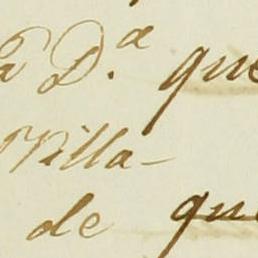 a D.ª que
Villa-
de que